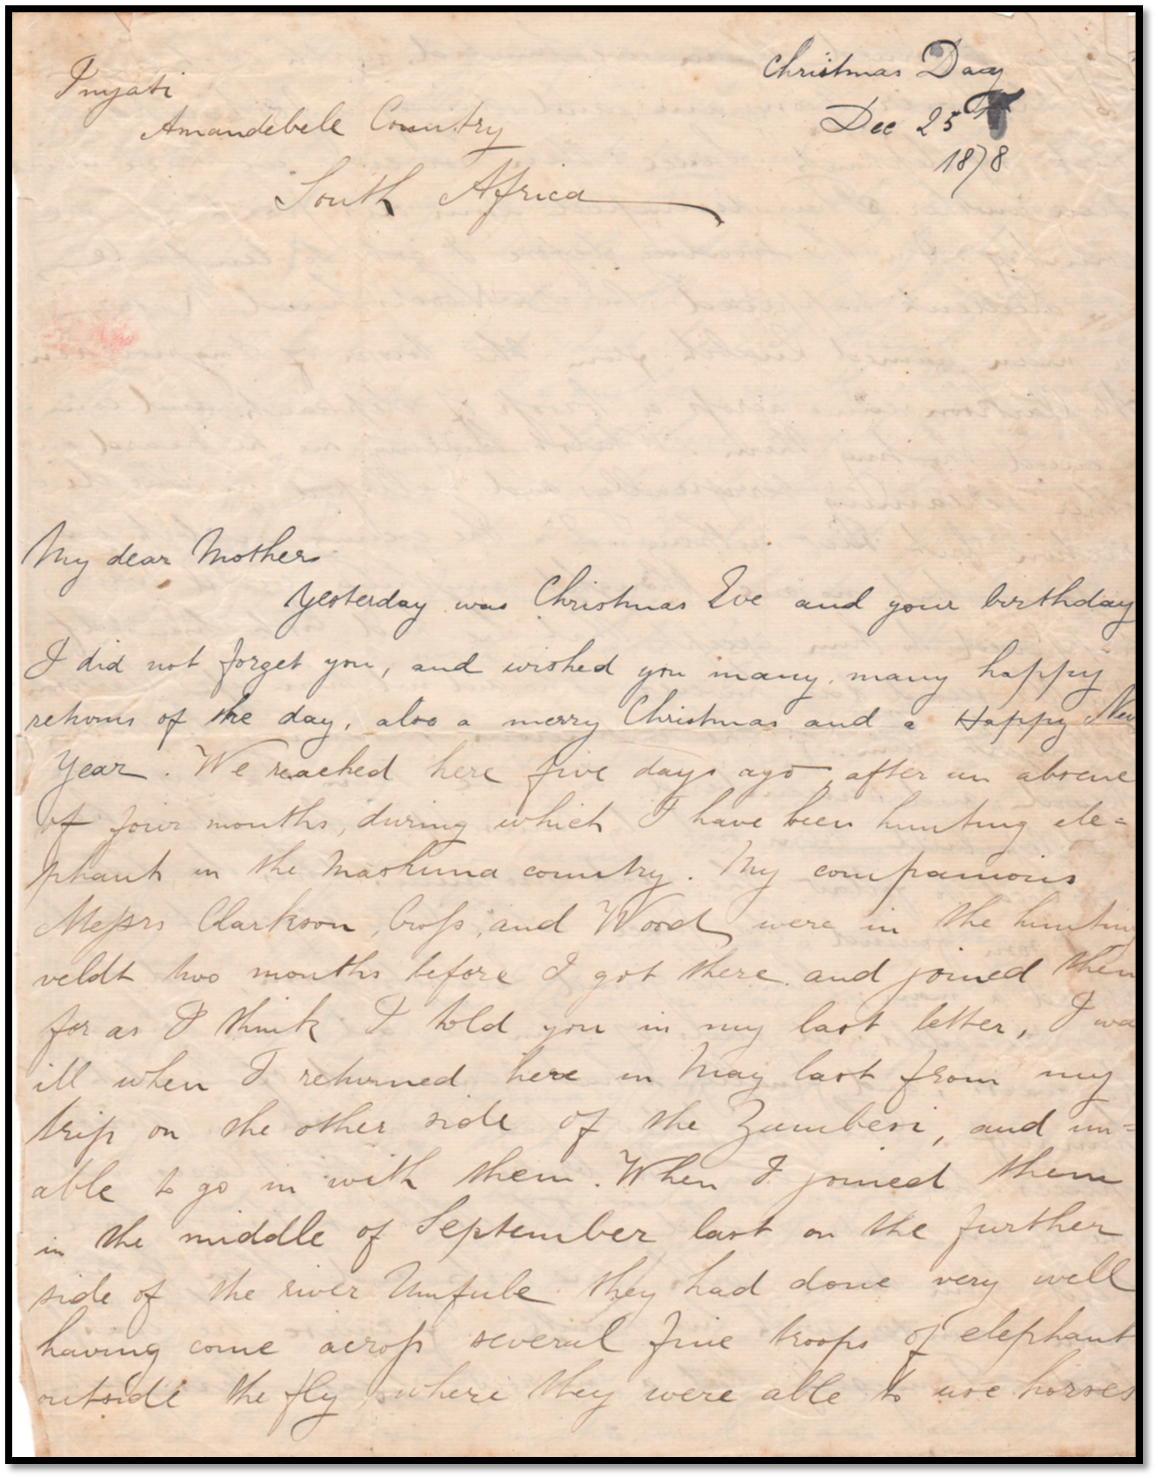 Inyati
Christmas Day
Amandebele Country
Dec 25th
1878
South Africa
My dear Mother
Yesterday was Christmas Eve and your birthday
I did not forget you, and wished you many, many happy
returns of the day, also a merry Christmas and a Happy New
Year. We reached here five days ago, after an absence
of four months, during which I have been hunting ele=
phants in the Mashuna country. My companions
Messrs Clarkson, Cross, and Wood, were in the hunting
veldt two months before I got there and joined them
for as I think I told you in my last letter, I was
ill when I returned here in May last from my
trip on the other side of the Zambesi, and un=
able to go in with them. When I joined them
in the middle of September last on the further
side of the river Umfule they had done very well
having come across several fine troops of elephant
outside the fly where they were able to use horses